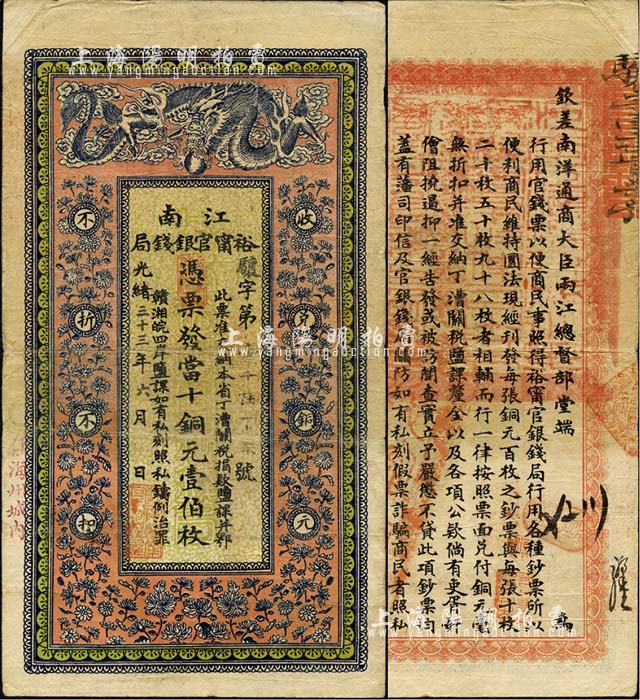 上海陽明拍賣
www.yangmingauction.com
江南
裕甯官銀錢局
收兌銅元
不折不扣
字第
號
此票准
本省丁漕關稅捐款鹽課并鄂
憑票發當十銅元壹佰枚
贛湘皖四岸鹽課如有私刻照私鑄例治罪
光緒三十三年六月 日
海州城內
欽差南洋通商大臣兩江總督部堂端 為
行用官錢票以便商民事照得裕甯官銀錢局行用各種鈔票所以
便利商民維持圜法現經刊發每張銅元百枚之鈔票與每張十枚
二十枚五十枚九十八枚者相輔而行一律按照票面兌付銅元毫
無折扣并准交納丁漕關稅鹽課釐金以及各項公款倘有吏胥奸
儈阻撓遏抑一經告發或被
查實立予嚴懲不貸此項鈔票均
蓋有藩司印信及官銀錢
防如有私刻假票詐騙商民者照私
上海陽明拍賣
www.yangmingauction.com
上海陽明拍賣
www.yangmingauction.com